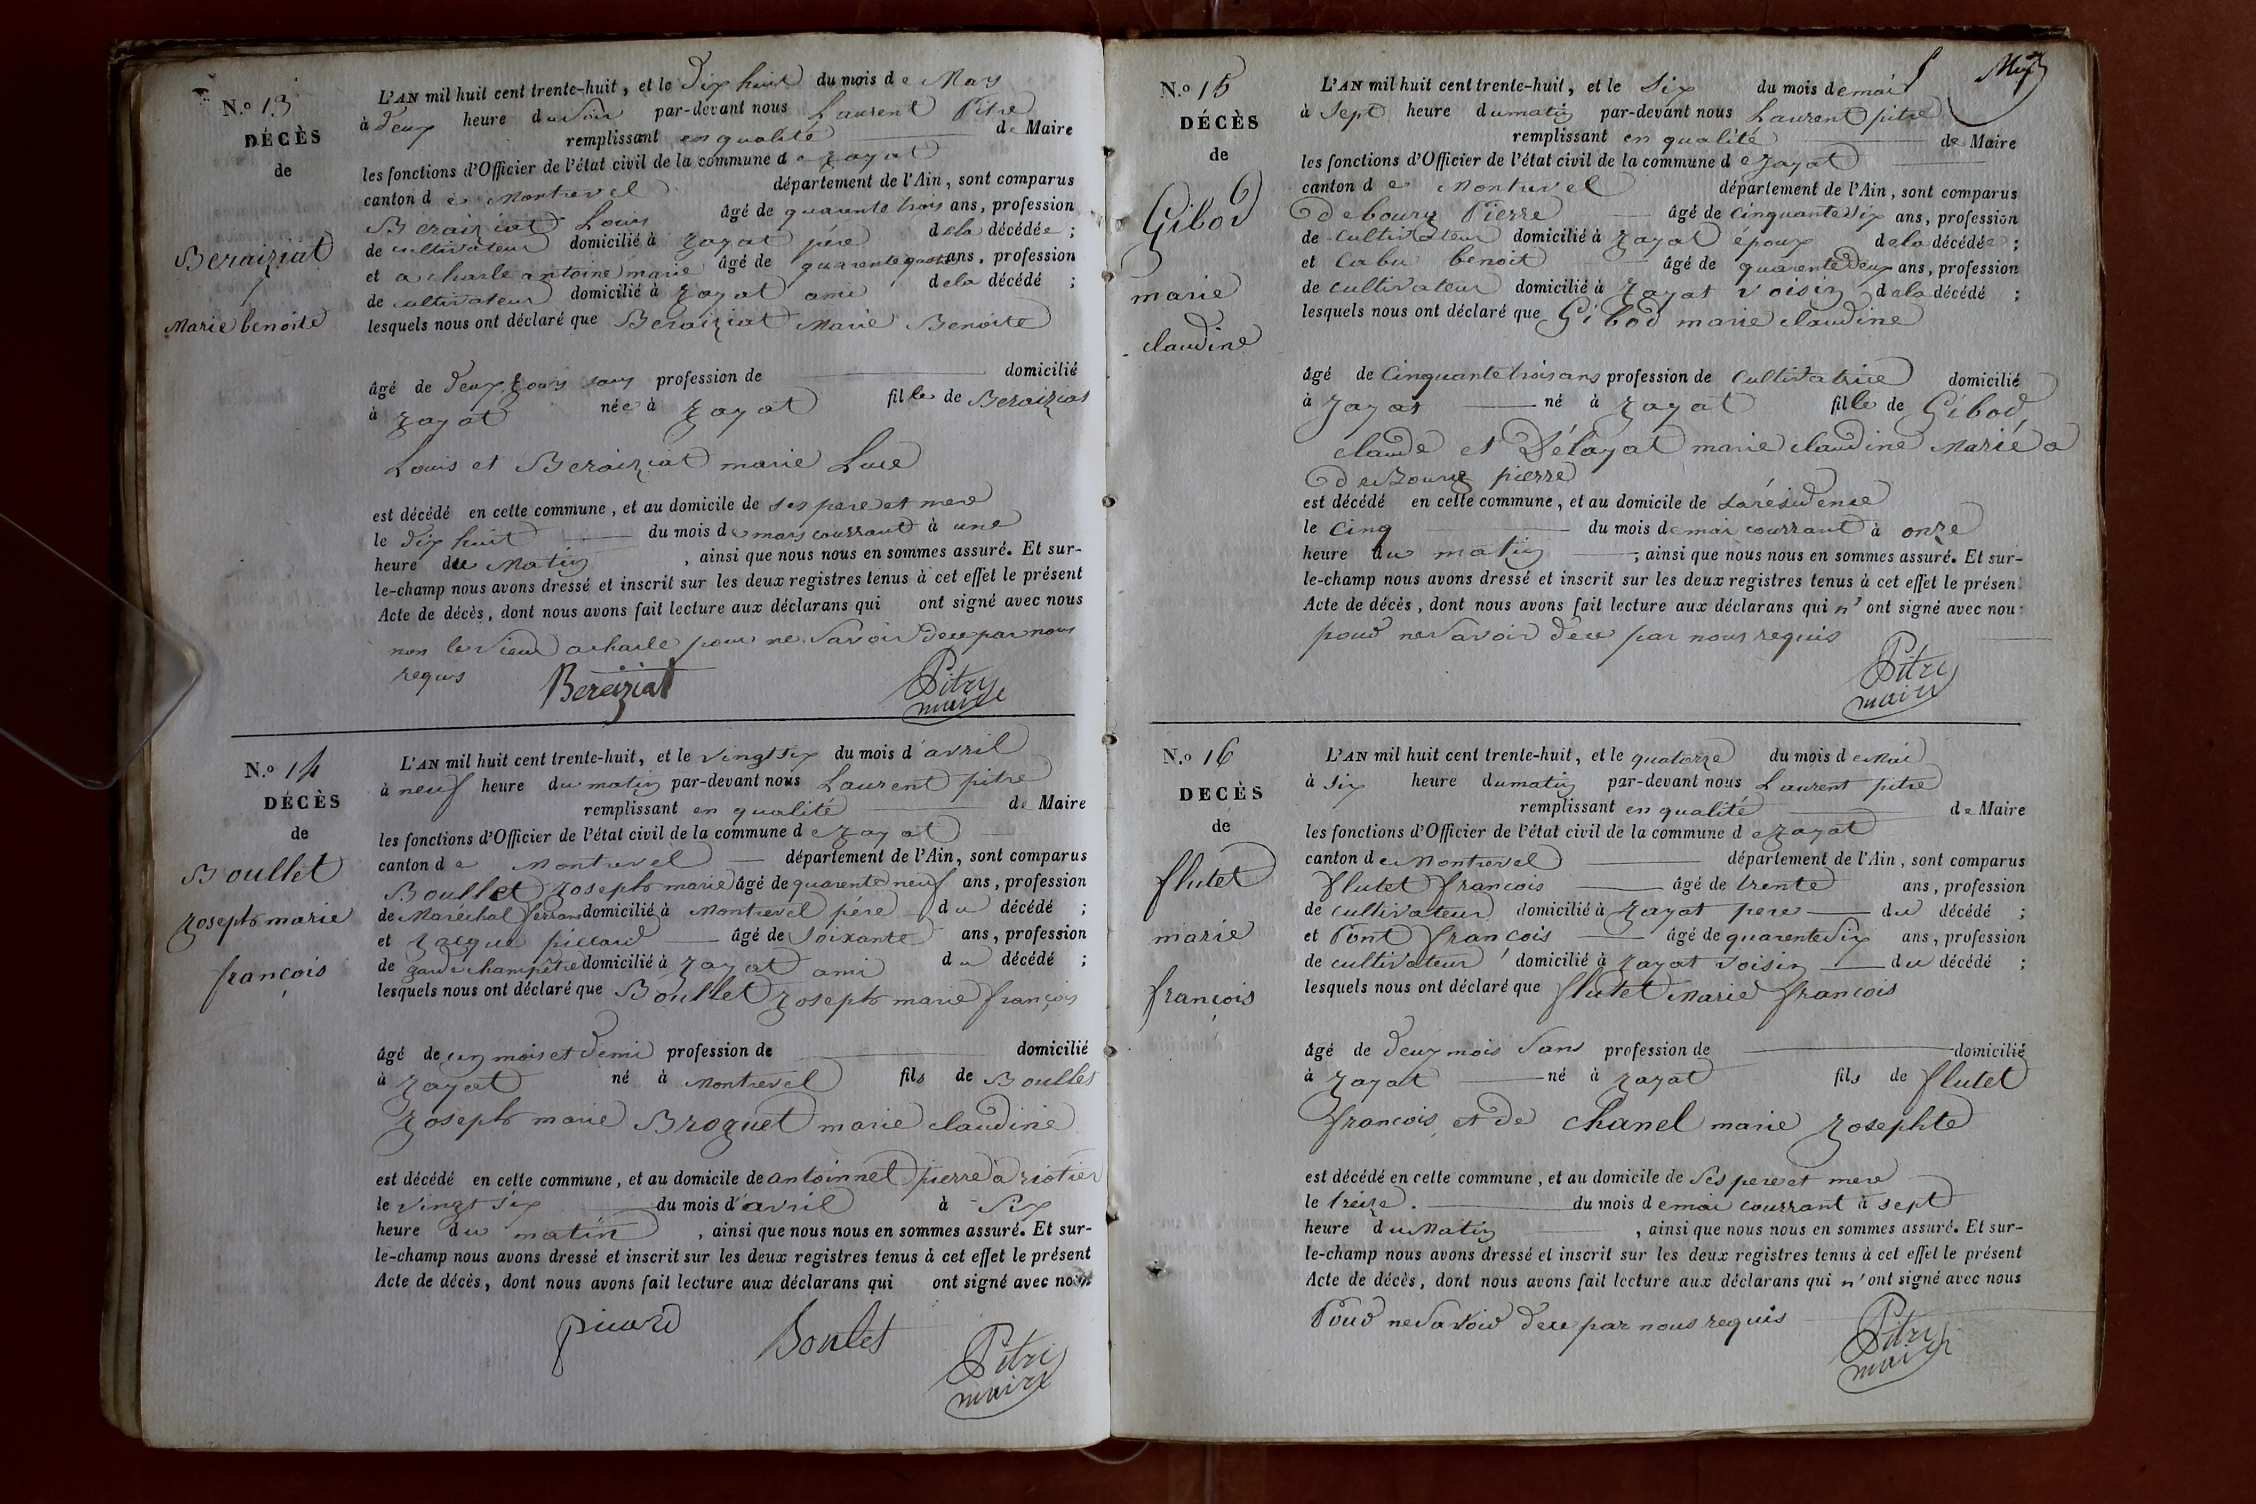 N.º 13
DÉCÈS
de
Beraiziat
Marie benoite
L'AN mil huit cent trente-huit, et le dix huit du mois de Mars
à deux heure du soir par-devant nous Laurent Pitre
remplissant en qualité de Maire
les fonctions d'Officier de l'état civil de la commune de zayat
canton de Montrevel département de l'Ain, sont comparus
Beraiziat Louis âgé de quarente trois ans, profession
de cultivateur domicilié à zayat pére de la décédée ;
et acharle antoine marie âgé de quarente quatre ans, profession
de cultivateur domicilié à zayat ami de la décédé ;
lesquels nous ont déclaré que Beraiziat Marie Benoite
âgé de deux jours sans profession de domicilié
à zayat née à zayat fille de Beraiziat
Louis et Beraiziat marie Luce
est décédé en cette commune, et au domicile de ses pere et mere
le dix huit du mois de mars courrant à une
heure du Matin, ainsi que nous nous en sommes assuré. Et sur-
le-champ nous avons dressé et inscrit sur les deux registres tenus à cet effet le présent
Acte de décès, dont nous avons fait lecture aux déclarans qui ont signé avec nous
non le sieur acharle pour ne savoir dece par nous
requis Beraiziat Pitre
maire
N.º 14
DÉCÈS
de
Boullet
zoseph marie
françois
L'AN mil huit cent trente-huit, et le vingt six du mois d'avril
à neuf heure du matin par-devant nous Laurent pitre
remplissant en qualité de Maire
les fonctions d'Officier de l'état civil de la commune de zayat
canton de Montrevel département de l'Ain, sont comparus
Boullet zoseph marie âgé de quarente neuf ans, profession
de Maréchal ferrant domicilié à Montrevel pére du décédé ;
et zacque piccard âgé de soixante ans, profession
de garde champêtre domicilié à zayat ami du décédé ;
lesquels nous ont déclaré que Boullet zoseph marie françois
âgé de un mois et demi profession de domicilié
à zayat né à Montrevel fils de Boullet
zoseph marie Broguet marie claudine
est décédé en cette commune, et au domicile de antoinnet pierre à riotier
le vingt six du mois d'avril à six
heure du matin, ainsi que nous nous en sommes assuré. Et sur-
le-champ nous avons dressé et inscrit sur les deux registres tenus à cet effet le présent
Acte de décès, dont nous avons fait lecture aux déclarans qui ont signé avec nous
picard Boulet Pitre
maire
N.º 15
DÉCÈS
de
Gibod
marie
claudine
L'AN mil huit cent trente-huit, et le six du mois de mai
à sept heure du matin par-devant nous Laurent pitre
remplissant en qualité de Maire
les fonctions d'Officier de l'état civil de la commune de zayat
canton de Montrevel département de l'Ain, sont comparus
Debourg Pierre âgé de cinquante six ans, profession
de cultivateur domicilié à zayat époux de la décédée ;
et Cabu benoit âgé de quarente deux ans, profession
de cultivateur domicilié à zayat voisin de la décédé ;
lesquels nous ont déclaré que Gibod marie claudine
âgé de Cinquante trois ans profession de cultivatrice domicilié
à zayat né à zayat fille de Gibod
claude et Délayat marie claudine Marié a
Debourg pierre
est décédé en cette commune, et au domicile de sa résidense
le cinq du mois de mai courrant à onze
heure du matin, ainsi que nous nous en sommes assuré. Et sur-
le-champ nous avons dressé et inscrit sur les deux registres tenus à cet effet le présen
Acte de décès, dont nous avons fait lecture aux déclarans qui n'ont signé avec nou
pour ne savoir dece par nous requis
Pitre
maire
N.º 16
DECÈS
de
flutet
marie
françois
L'AN mil huit cent trente-huit, et le quatorze du mois de Mai
à six heure du matin par-devant nous Laurent pitre
remplissant en qualité de Maire
les fonctions d'Officier de l'état civil de la commune de zayat
canton de Montrevel département de l'Ain, sont comparus
flutet françois âgé de trente ans, profession
de cultivateur domicilié à zayat pere du décédé ;
et Pont françois âgé de quarente six ans, profession
de cultivateur domicilié à zayat voisin du décédé ;
lesquels nous ont déclaré que flutet Marie françois
âgé de deux mois sans profession de domicilié
à zayat né à zayat fils de flutet
françois et de chanel marie zosephte
est décédé en cette commune, et au domicile de ses pere et mere
le treize du mois de mai courrant à sept
heure du Matin, ainsi que nous nous en sommes assuré. Et sur-
le-champ nous avons dressé et inscrit sur les deux registres tenus à cet effet le présent
Acte de décès, dont nous avons fait lecture aux déclarans qui n'ont signé avec nous
Pour ne savoir dece par nous requis
Pitre
maire